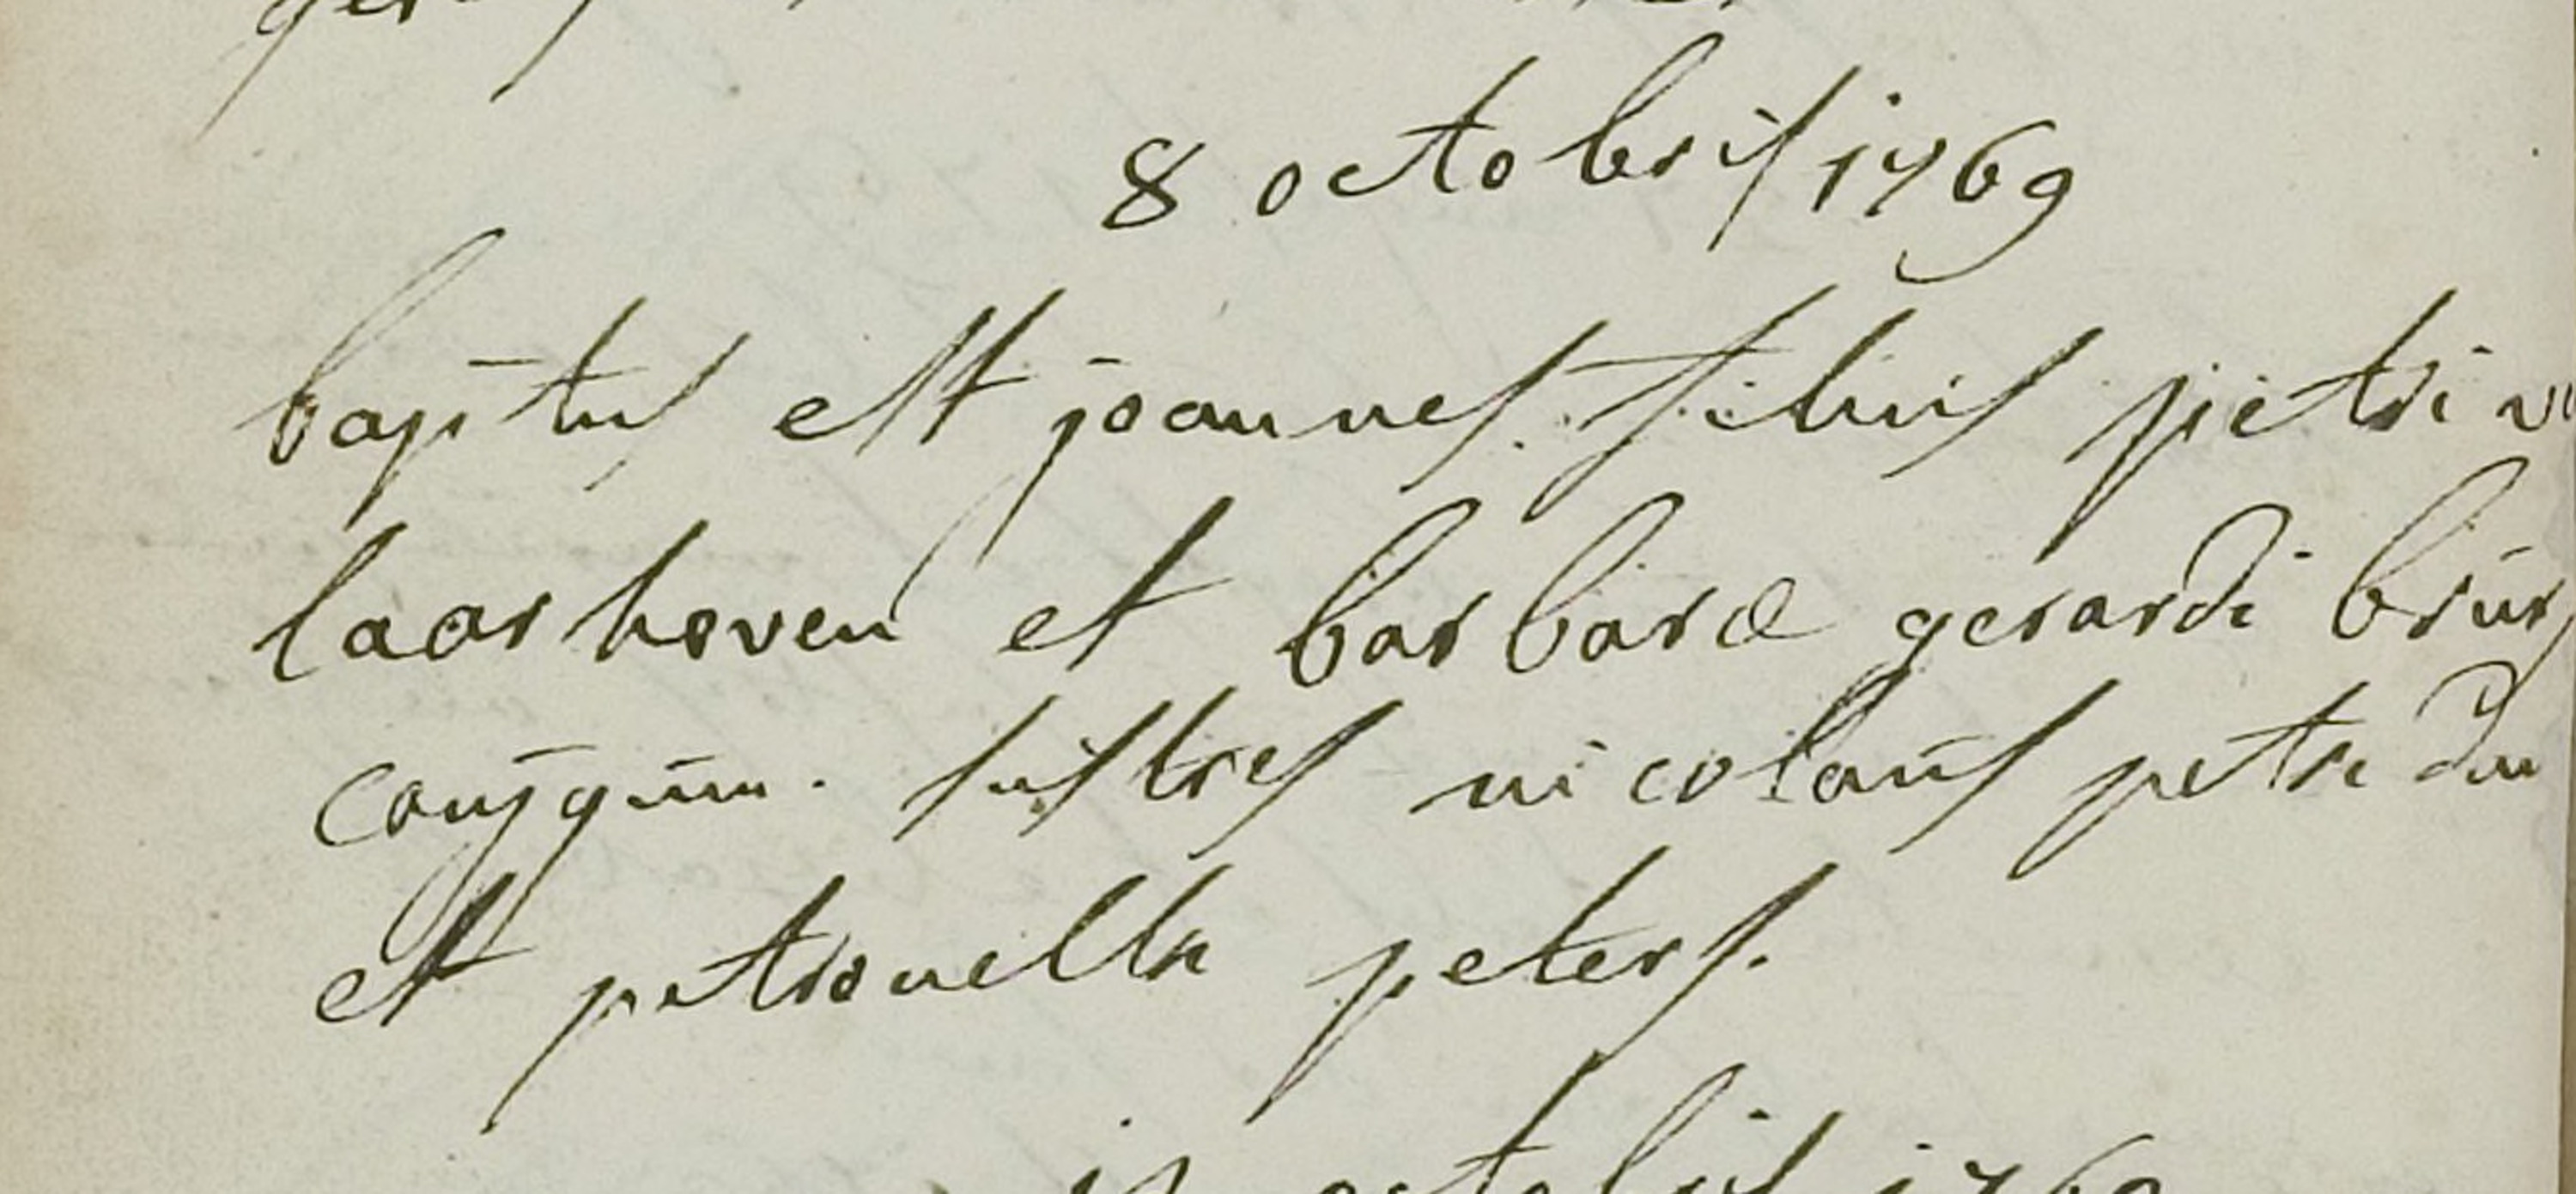 8 octobris 1769
bap̄tus est joannes filius petri
laarhoven et barbaræ gerardi
conjgūm. susctres nicolaus petri
et petronella peters.
octobris 1769